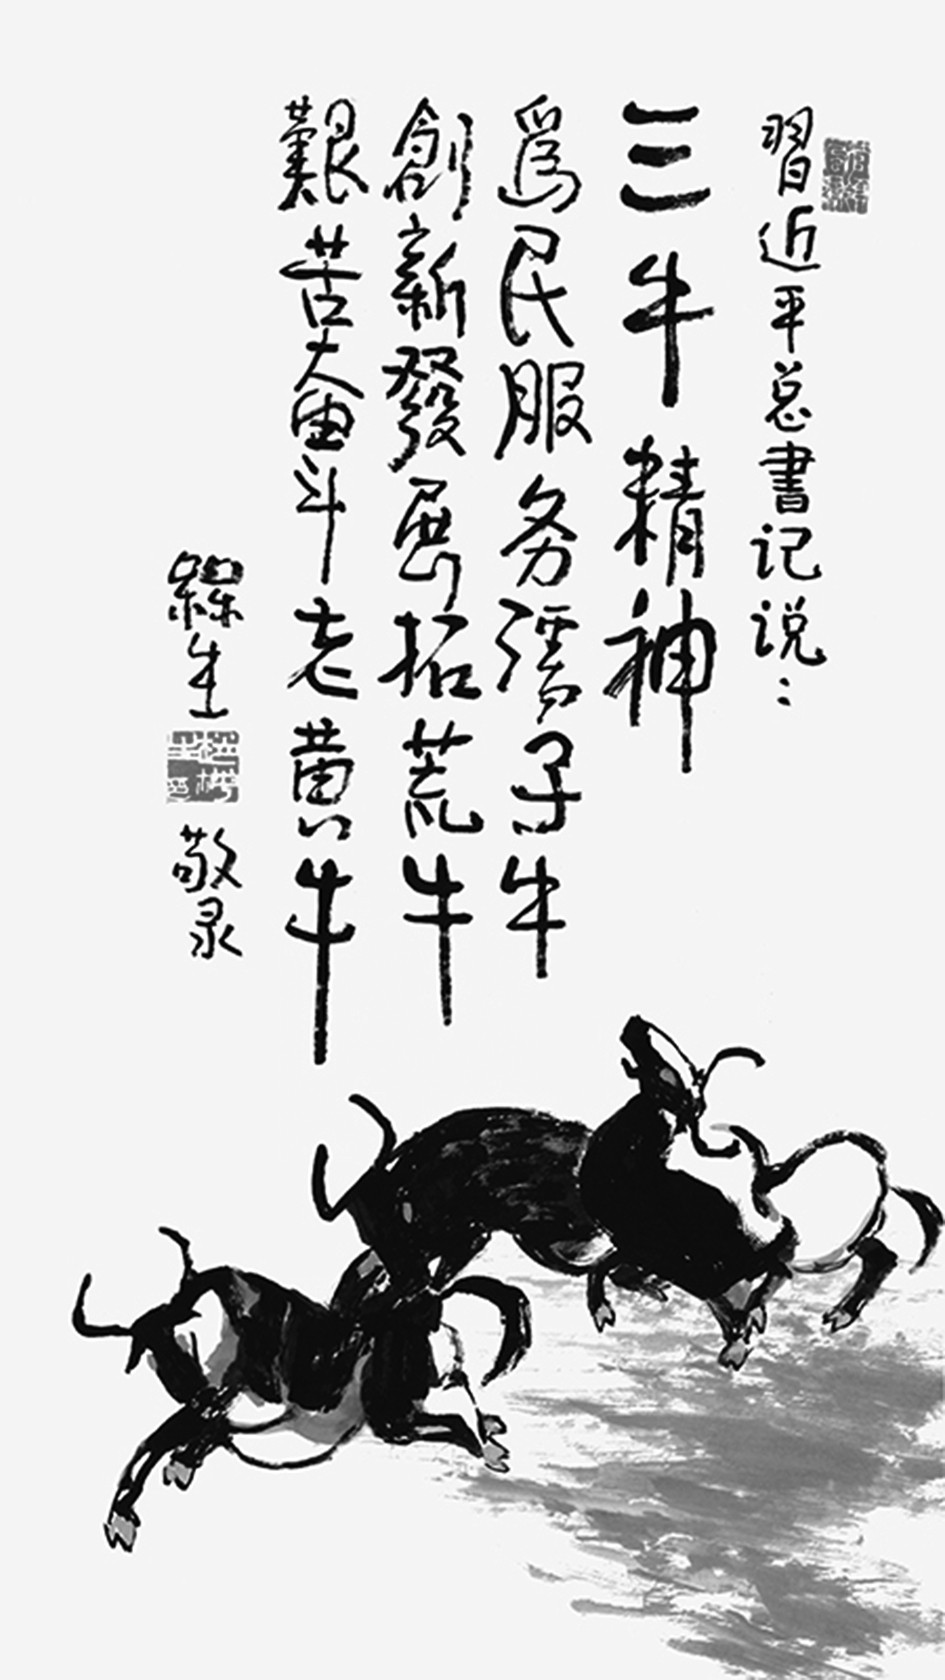 習近平总書记说:
三牛精神
爲民服务孺子牛
創新發展拓荒牛
艱苦奮斗老黄牛
生
敬录